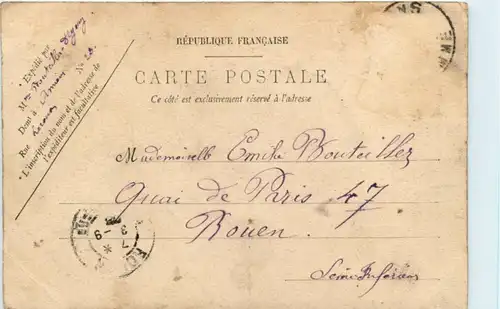 RÉPUBLIQUE FRANÇAISE
CARTE POSTALE
Ce côté est exclusivement réservé à l'adresse
* Expédié par
M
Demt à Amiens
Rue N° 28
* L'inscription du nom et de l'adresse de
l'expéditeur est facultative.
Mademoiselle Emilie Bouteiller
Quai de Paris 47
Rouen.
Seine Inférieure
7
3 - 9